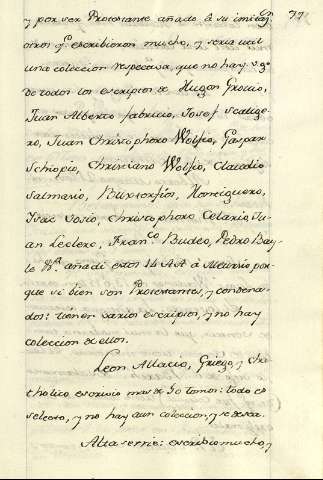 77
y por ser Protestante añado à su imitaᵒⁿ
otros qᵉ escribieron mucho, y seria util
una coleccion respectiva, que no hay
de todos los escriptos de Hugon Grocio,
Juan Alberto Fabricio, Josef Scalige-
ro, Juan Christophoro Wolfio, Gaspar
Schiopio, Christiano Wolfio, Claudio
Salmasio, Buxtorfios, Hottinguero,
Isac Vosio, Christophoro Celario, Ju-
an Leclerc, Franᶜᵒ Budeo, Pedro Bay-
le &ª añadi estos 14 AA à Meursio por-
que si bien son Protestantes, y condena-
dos: tienen varios escriptos, y no hay
coleccion de ellos.
Leon Allacio, Griego, y cha-
tholico escrivio mas de 50 tomos: todo es
selecto, y no hay aun coleccion, y se desea.
Altaserre: escribio mucho, y